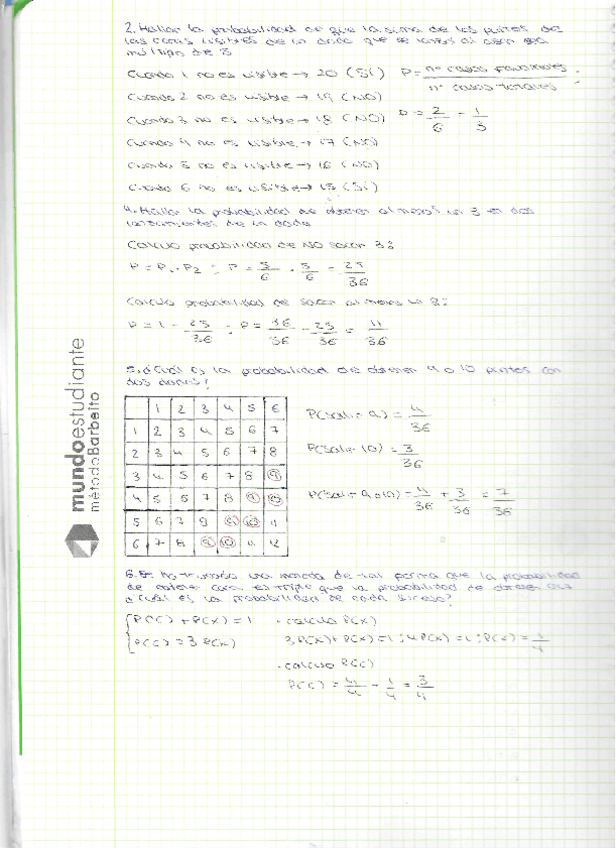 2. Hallar la probabilidad de que la suma de los puntos de
las caras visibles de un dado que se lanza al azar sea
múltiplo de 3
Cuando 1 no es visible → 20 (Sí) P = nº casos favorables / nº casos totales
Cuando 2 no es visible → 19 (NO)
Cuando 3 no es visible → 18 (NO) P = 2/6 = 1/3
Cuando 4 no es visible → 17 (NO)
Cuando 5 no es visible → 16 (NO)
Cuando 6 no es visible → 15 (Sí)
4. Hallar la probabilidad de obtener al menos un 3 en dos
lanzamientos de un dado
Calculo probabilidad de NO sacar 3:
P = P₁ · P₂ ; P = 5/6 · 5/6 = 25/36
Calculo probabilidad de sacar al menos un 3:
P = 1 - 25/36 ; P = 36/36 - 25/36 = 11/36
5. ¿Cuál es la probabilidad de obtener 9 o 10 puntos con
dos dados?
1 2 3 4 5 6
1 2 3 4 5 6 7
2 3 4 5 6 7 8
3 4 5 6 7 8 9
4 5 6 7 8 9 10
5 6 7 8 9 10 11
6 7 8 9 10 11 12
P(salir 9) = 4/36
P(salir 10) = 3/36
P(salir 9 o 10) = 4/36 + 3/36 = 7/36
6. Se ha trucado una moneda de tal forma que la probabilidad
de obtener cara es triple que la probabilidad de obtener cruz
¿Cuál es la probabilidad de cada suceso?
P(C) + P(X) = 1 · Calculo P(X)
P(C) = 3 P(X) 3P(X) + P(X) = 1 ; 4P(X) = 1 ; P(X) = 1/4
· Calculo P(C)
P(C) = 4/4 - 1/4 = 3/4
mundoestudiante
métodoBarbeito